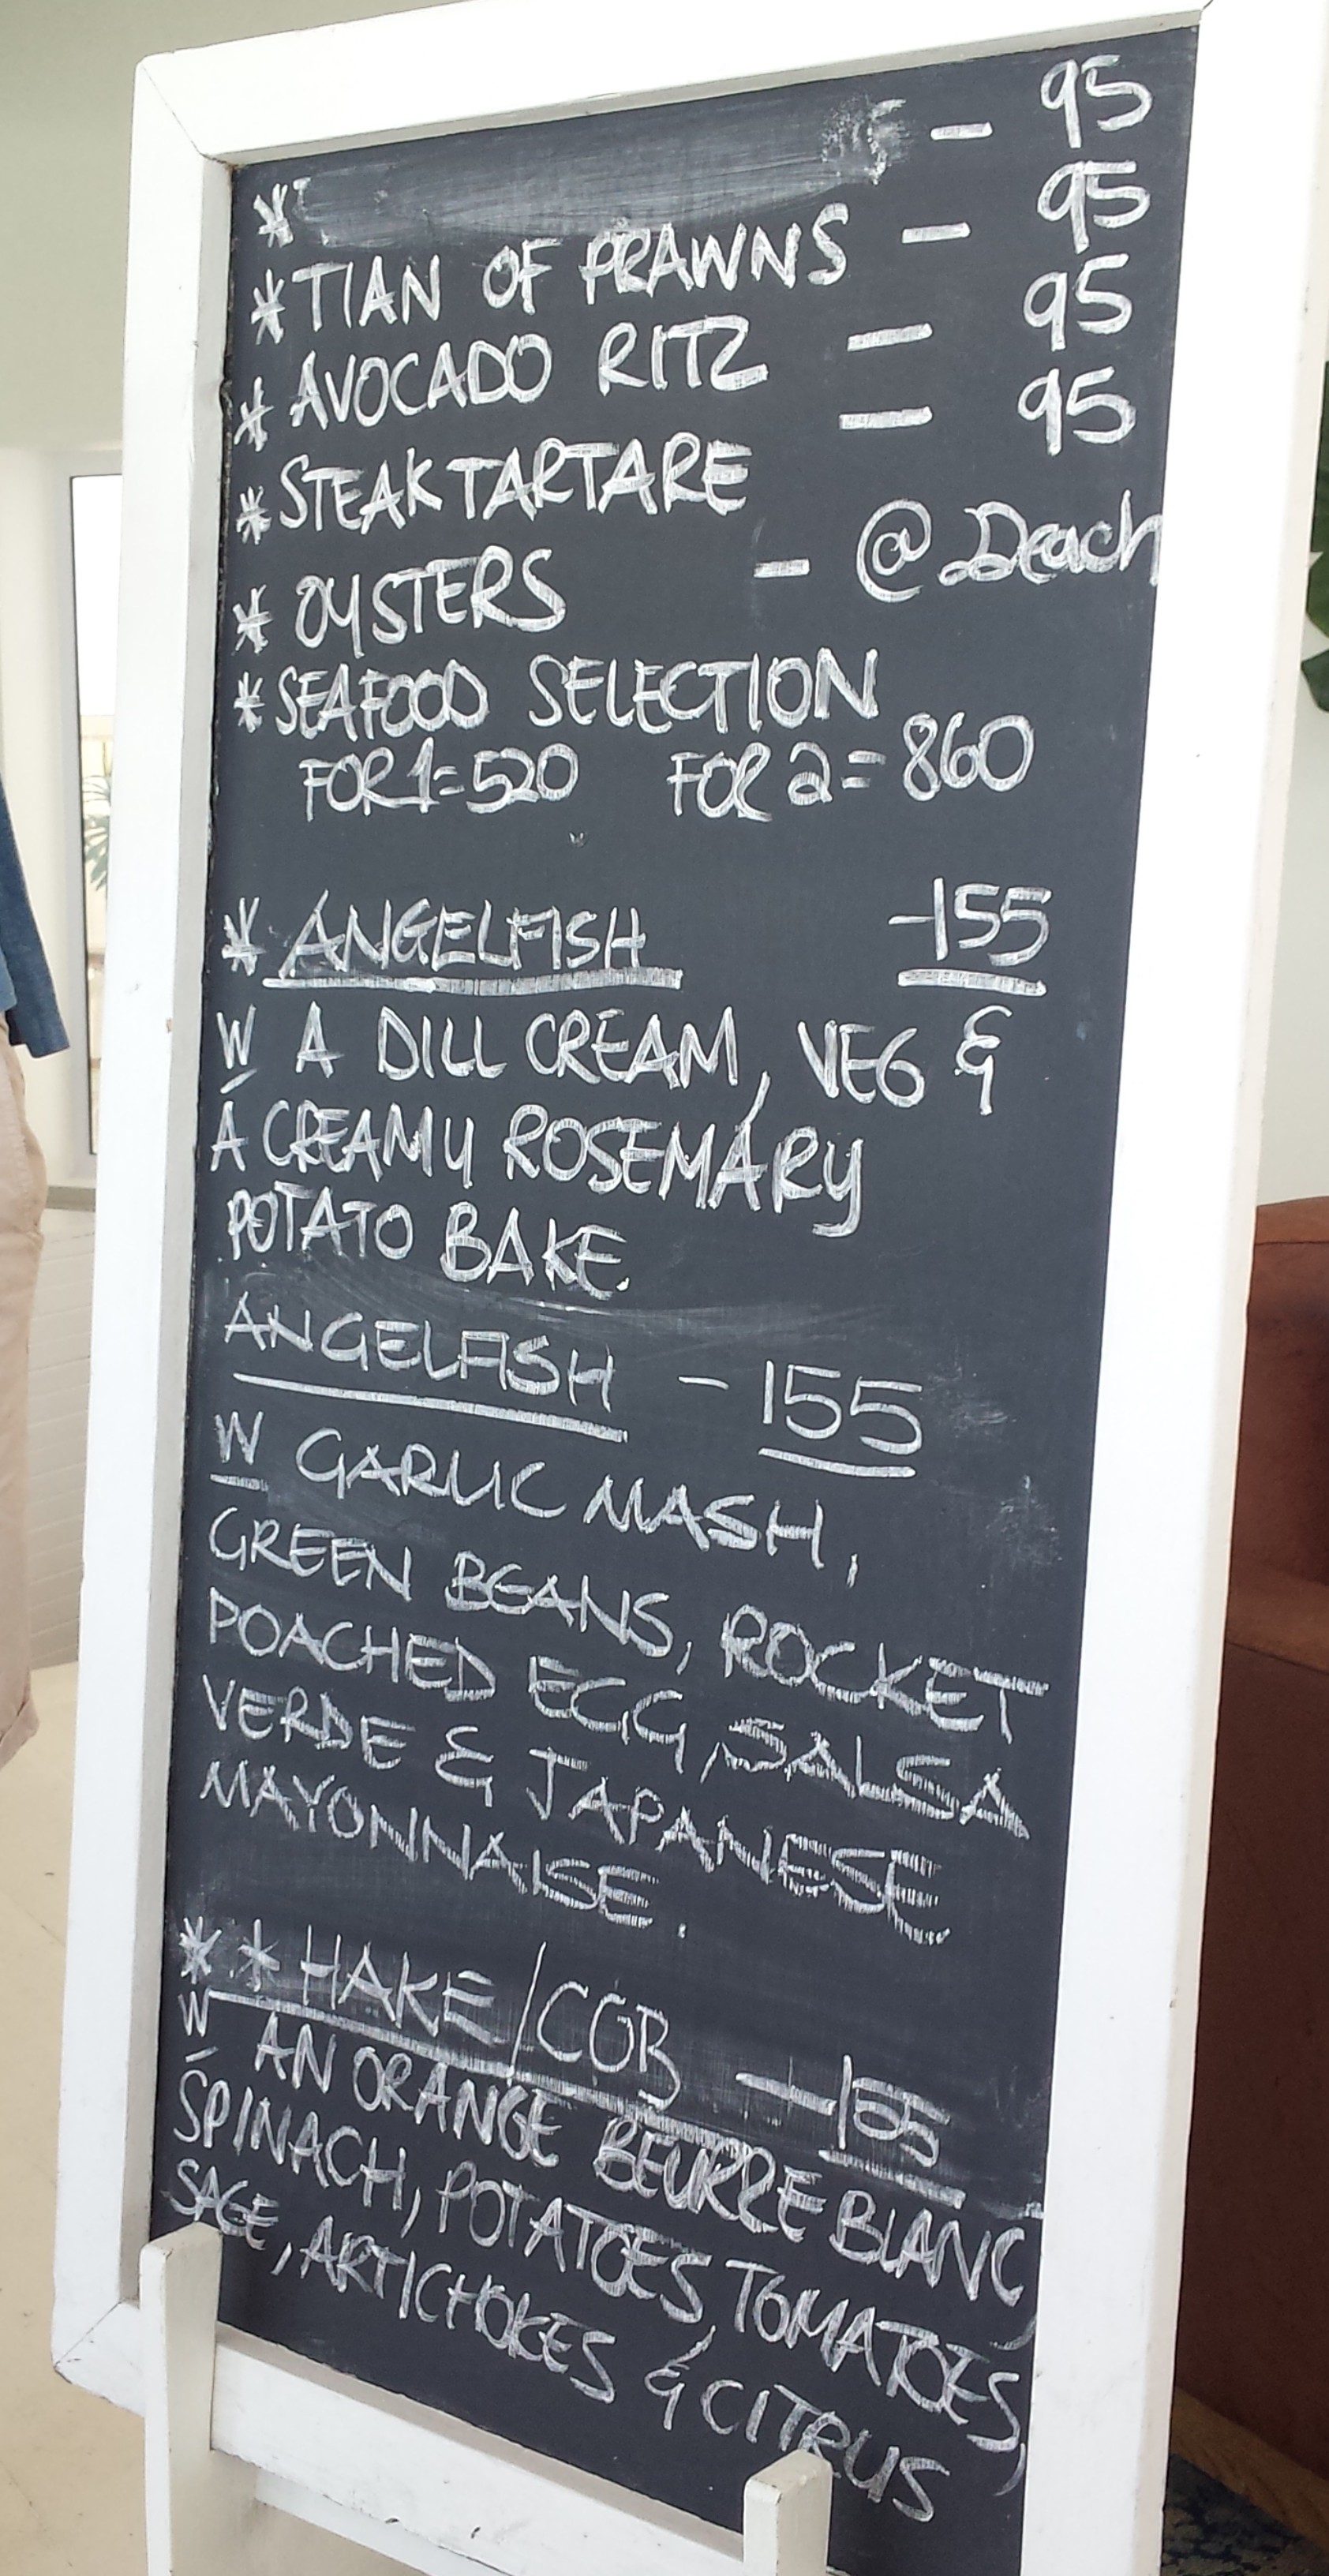 * - 95
* TIAN OF PRAWNS - 95
* AVOCADO RITZ - 95
* STEAK TARTARE - 95
* OYSTERS - @ each
* SEAFOOD SELECTION
FOR 1=520 FOR 2=860
* ANGELFISH -155
W A DILL CREAM, VEG &
A CREAMY ROSEMARY
POTATO BAKE.
ANGELFISH - 155
W GARLIC MASH,
GREEN BEANS, ROCKET
POACHED EGG, SALSA
VERDE & JAPANESE
MAYONNAISE.
* * HAKE / COB - 155
W AN ORANGE BEURRE BLANC,
SPINACH, POTATOES, TOMATOES,
SAGE, ARTICHOKES & CITRUS